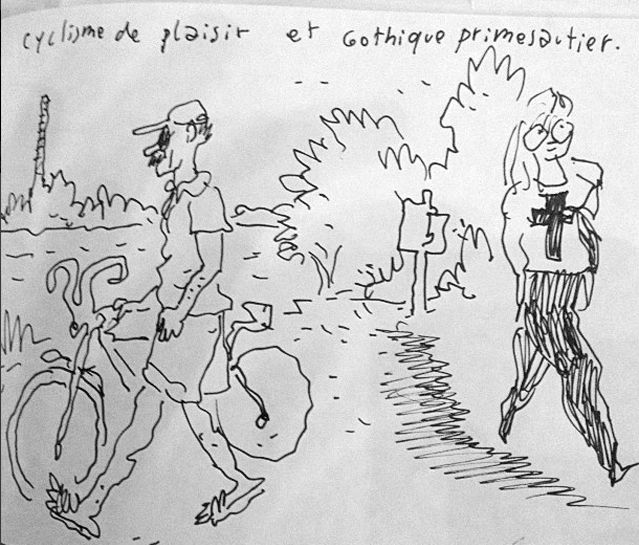 cyclisme de plaisir et Gothique primesautier.